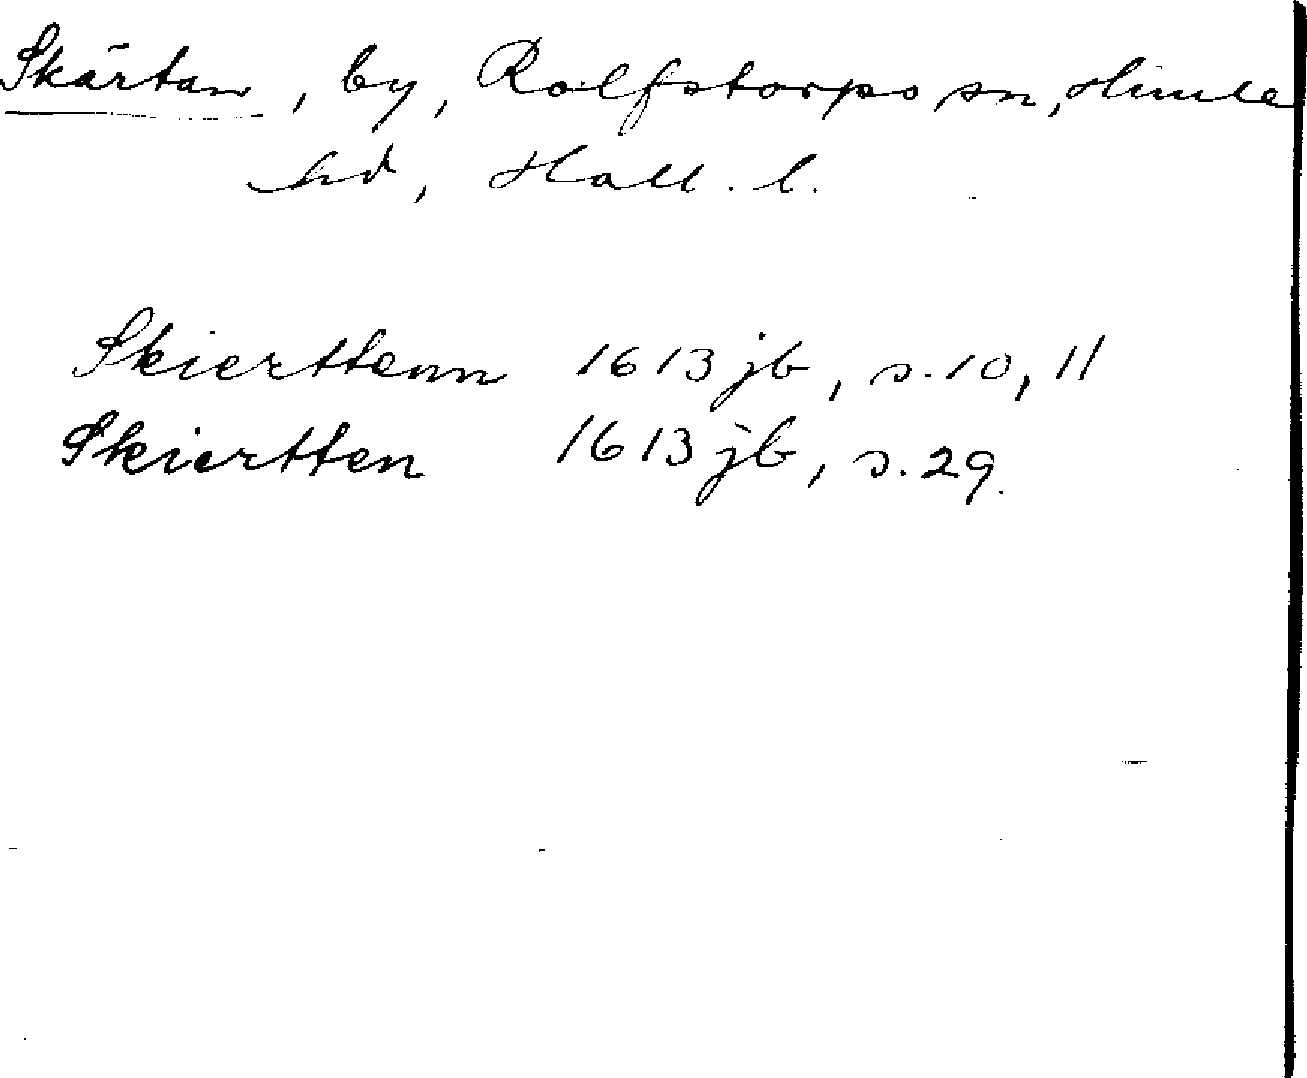 Skärtan, by, Rolfstorps sn, Himle
hd, Hall. l.
Skierttenn 1613 jb, s. 10, 11
Skiertten 1613 jb, s. 29.